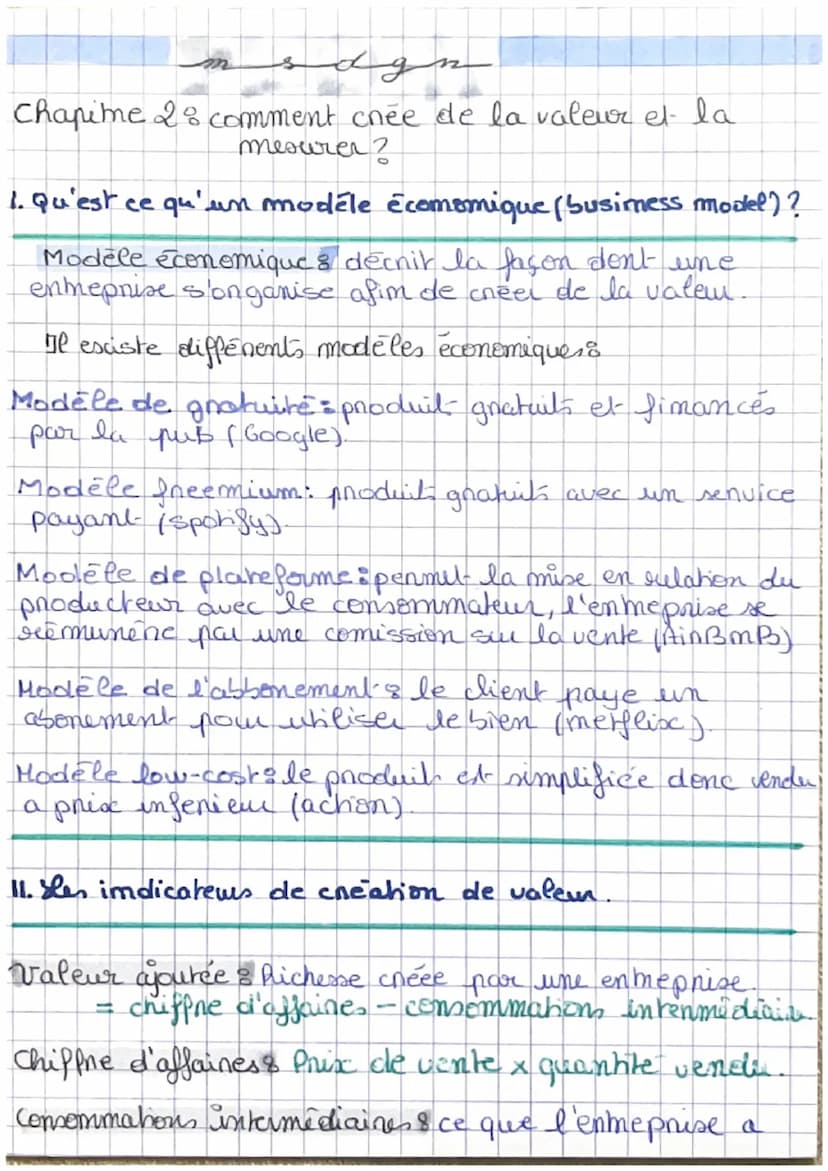 m s d g n
Chapitre 2 : comment crée de la valeur et la
mesurer ?
1. Qu'est ce qu'un modèle économique (business model) ?
Modèle économique : décrit la façon dont une
entreprise s'organise afin de créer de la valeur.
Il existe différents modèles économiques :
Modèle de gratuité : produit gratuits et financés
par la pub (Google).
Modèle freemium : produits gratuits avec un service
payant (spotify).
Modèle de plateforme : permet la mise en relation du
producteur avec le consommateur, l'entreprise se
rémunère par une comission sur la vente (AirBnB)
Modèle de l'abbonement : le client paye un
abonement pour utiliser le bien (netflix).
Modèle low-cost : le produit est simplifiée donc vendu
a prix inferieur (action).
II. Les indicateurs de création de valeur.
Valeur ajoutée : Richesse créée par une entreprise.
= chiffre d'affaires - consommations intermédiaire
Chiffre d'affaires : Prix de vente x quantité vendu.
Consommations intermédiaires : ce que l'entreprise a